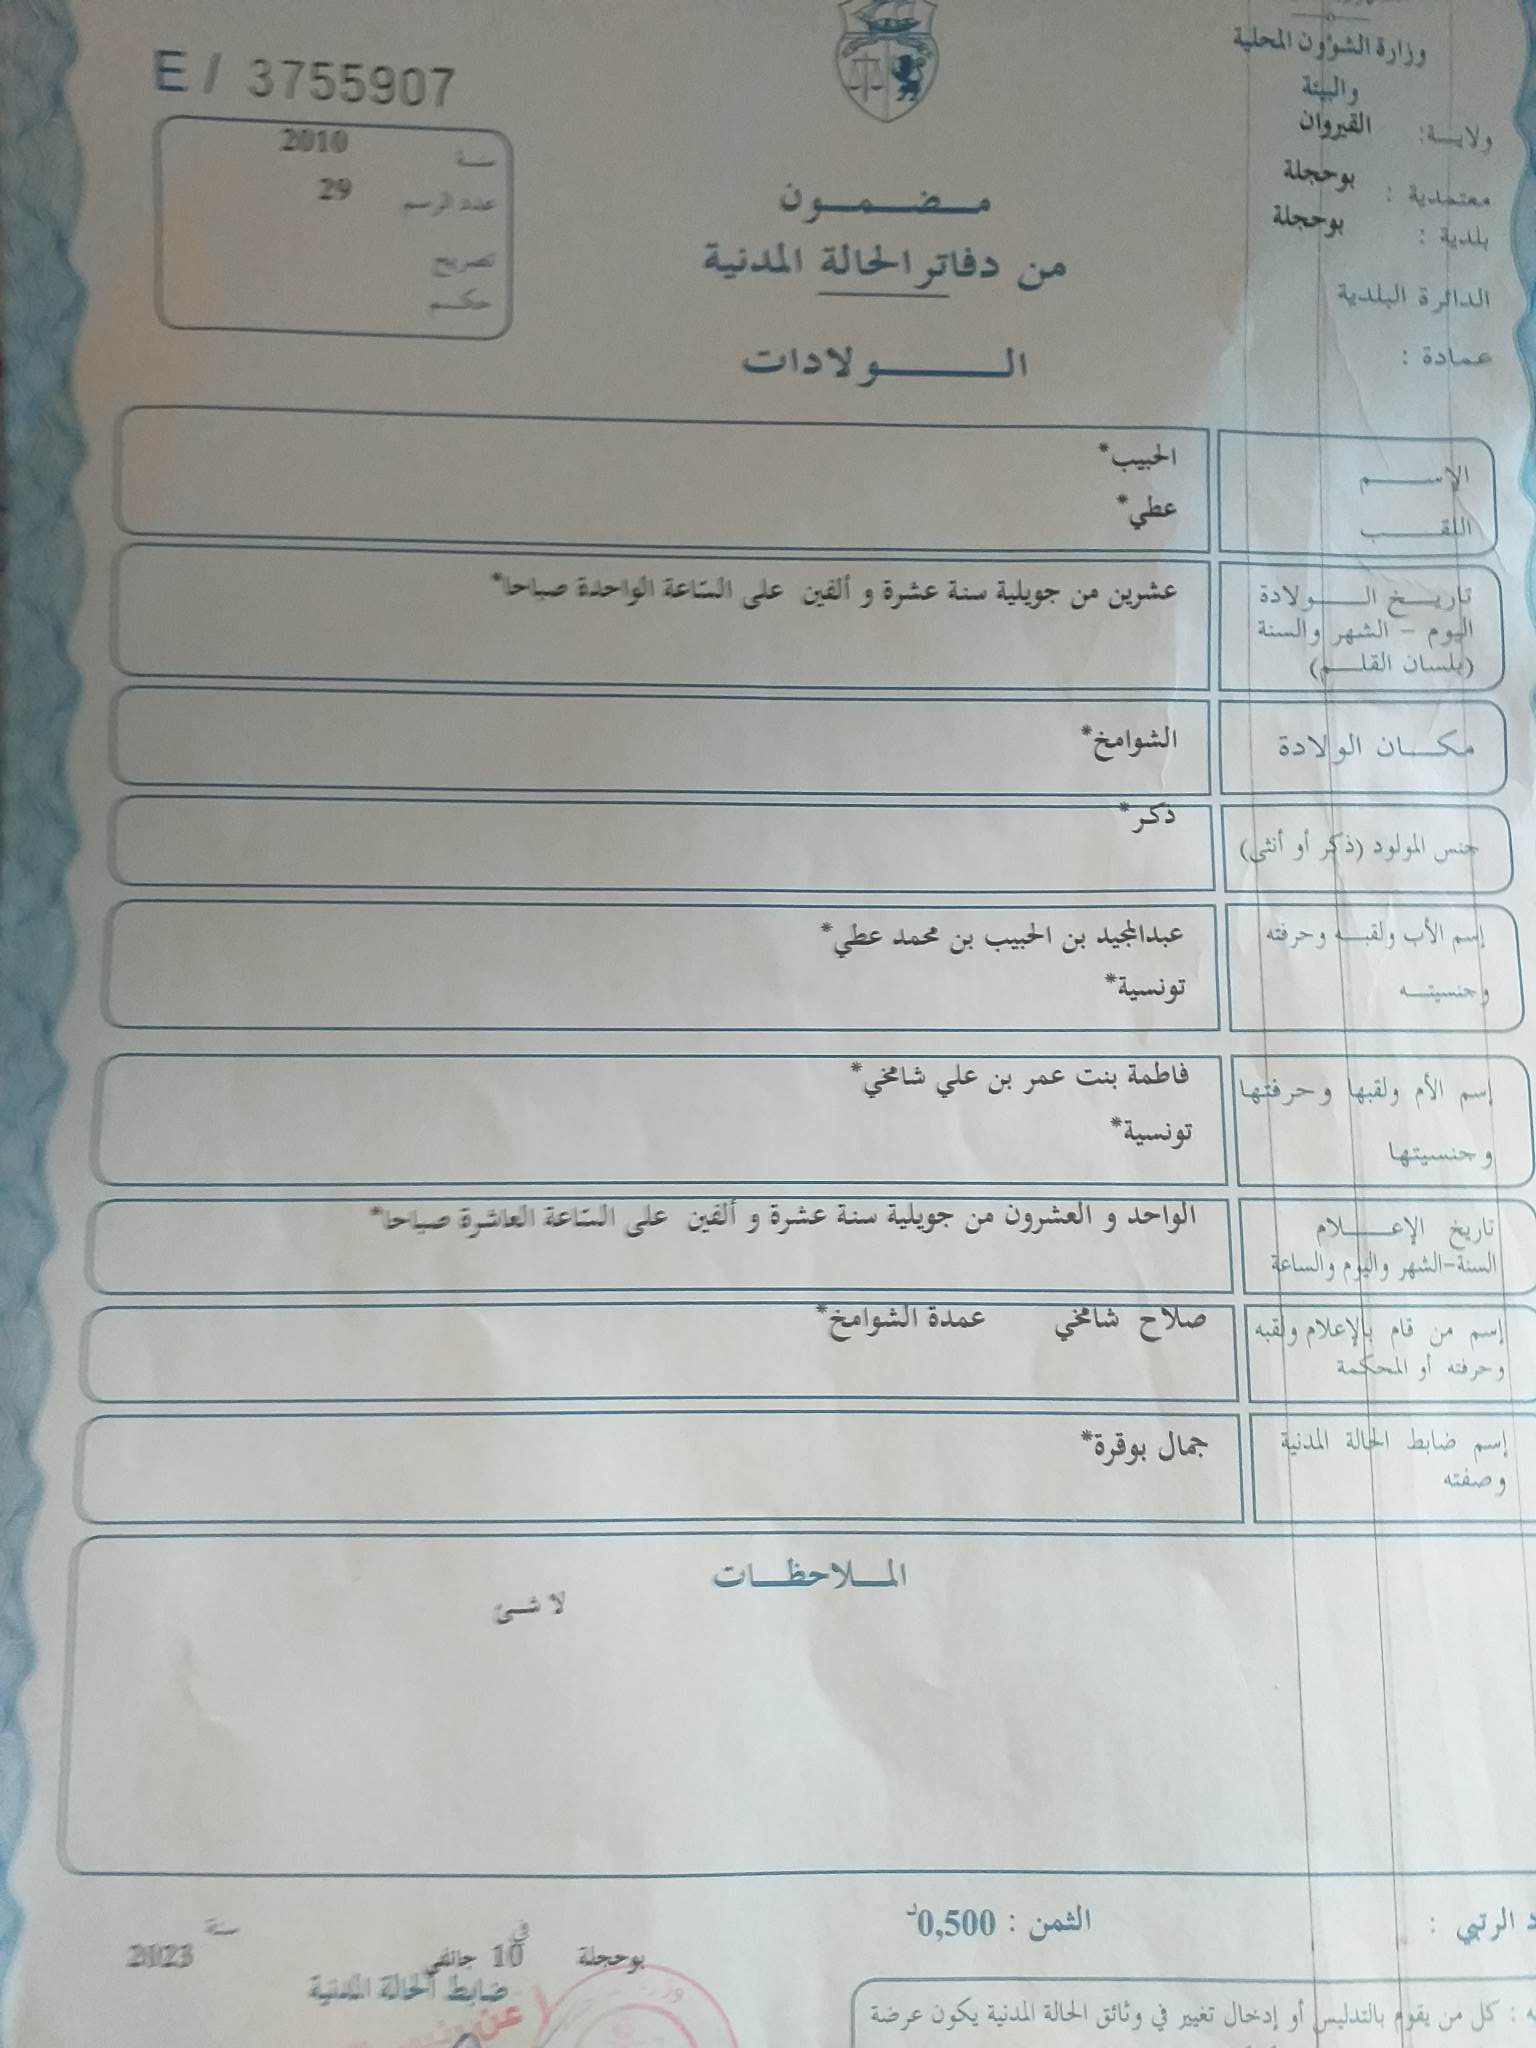 E / 3755907
وزارة الشؤون المحلية
والبيئة
ولايــة: القيروان
معتمدية : بوحجلة
بلدية : بوحجلة
الدائرة البلدية
عمادة :
سنة 2010
عدد الرسم 29
تصريح
حكم
مضمون
من دفاتر الحالة المدنية
الولادات
الإسم الحبيب*
اللقب عطي*
تاريخ الولادة
اليوم - الشهر والسنة
(بلسان القلم)
عشرين من جويلية سنة عشرة و ألفين على الساعة الواحدة صباحا*
مكان الولادة الشوامخ*
جنس المولود (ذكر أو أنثى) ذكر*
إسم الأب ولقبه وحرفته عبدالمجيد بن الحبيب بن محمد عطي*
وجنسيته تونسية*
إسم الأم ولقبها وحرفتها فاطمة بنت عمر بن علي شامخي*
وجنسيتها تونسية*
تاريخ الإعلام
السنة-الشهر واليوم والساعة
الواحد و العشرون من جويلية سنة عشرة و ألفين على الساعة العاشرة صباحا*
إسم من قام بالإعلام ولقبه
وحرفته أو المحكمة
صلاح شامخي عمدة الشوامخ*
إسم ضابط الحالة المدنية
وصفته
جمال بوقرة*
الملاحظات
لا شئ
الرتبي :
الثمن : 0,500د
بوحجلة في 10 جانفي سنة 2023
ضابط الحالة المدنية
كل من يقوم بالتدليس أو إدخال تغيير في وثائق الحالة المدنية يكون عرضة